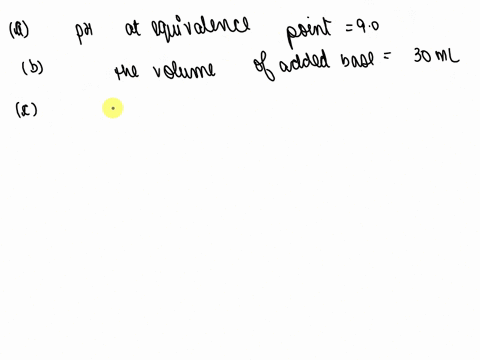 (a) pH at equivalence point = 9.0
(b) the volume of added base = 30 mL
(c)